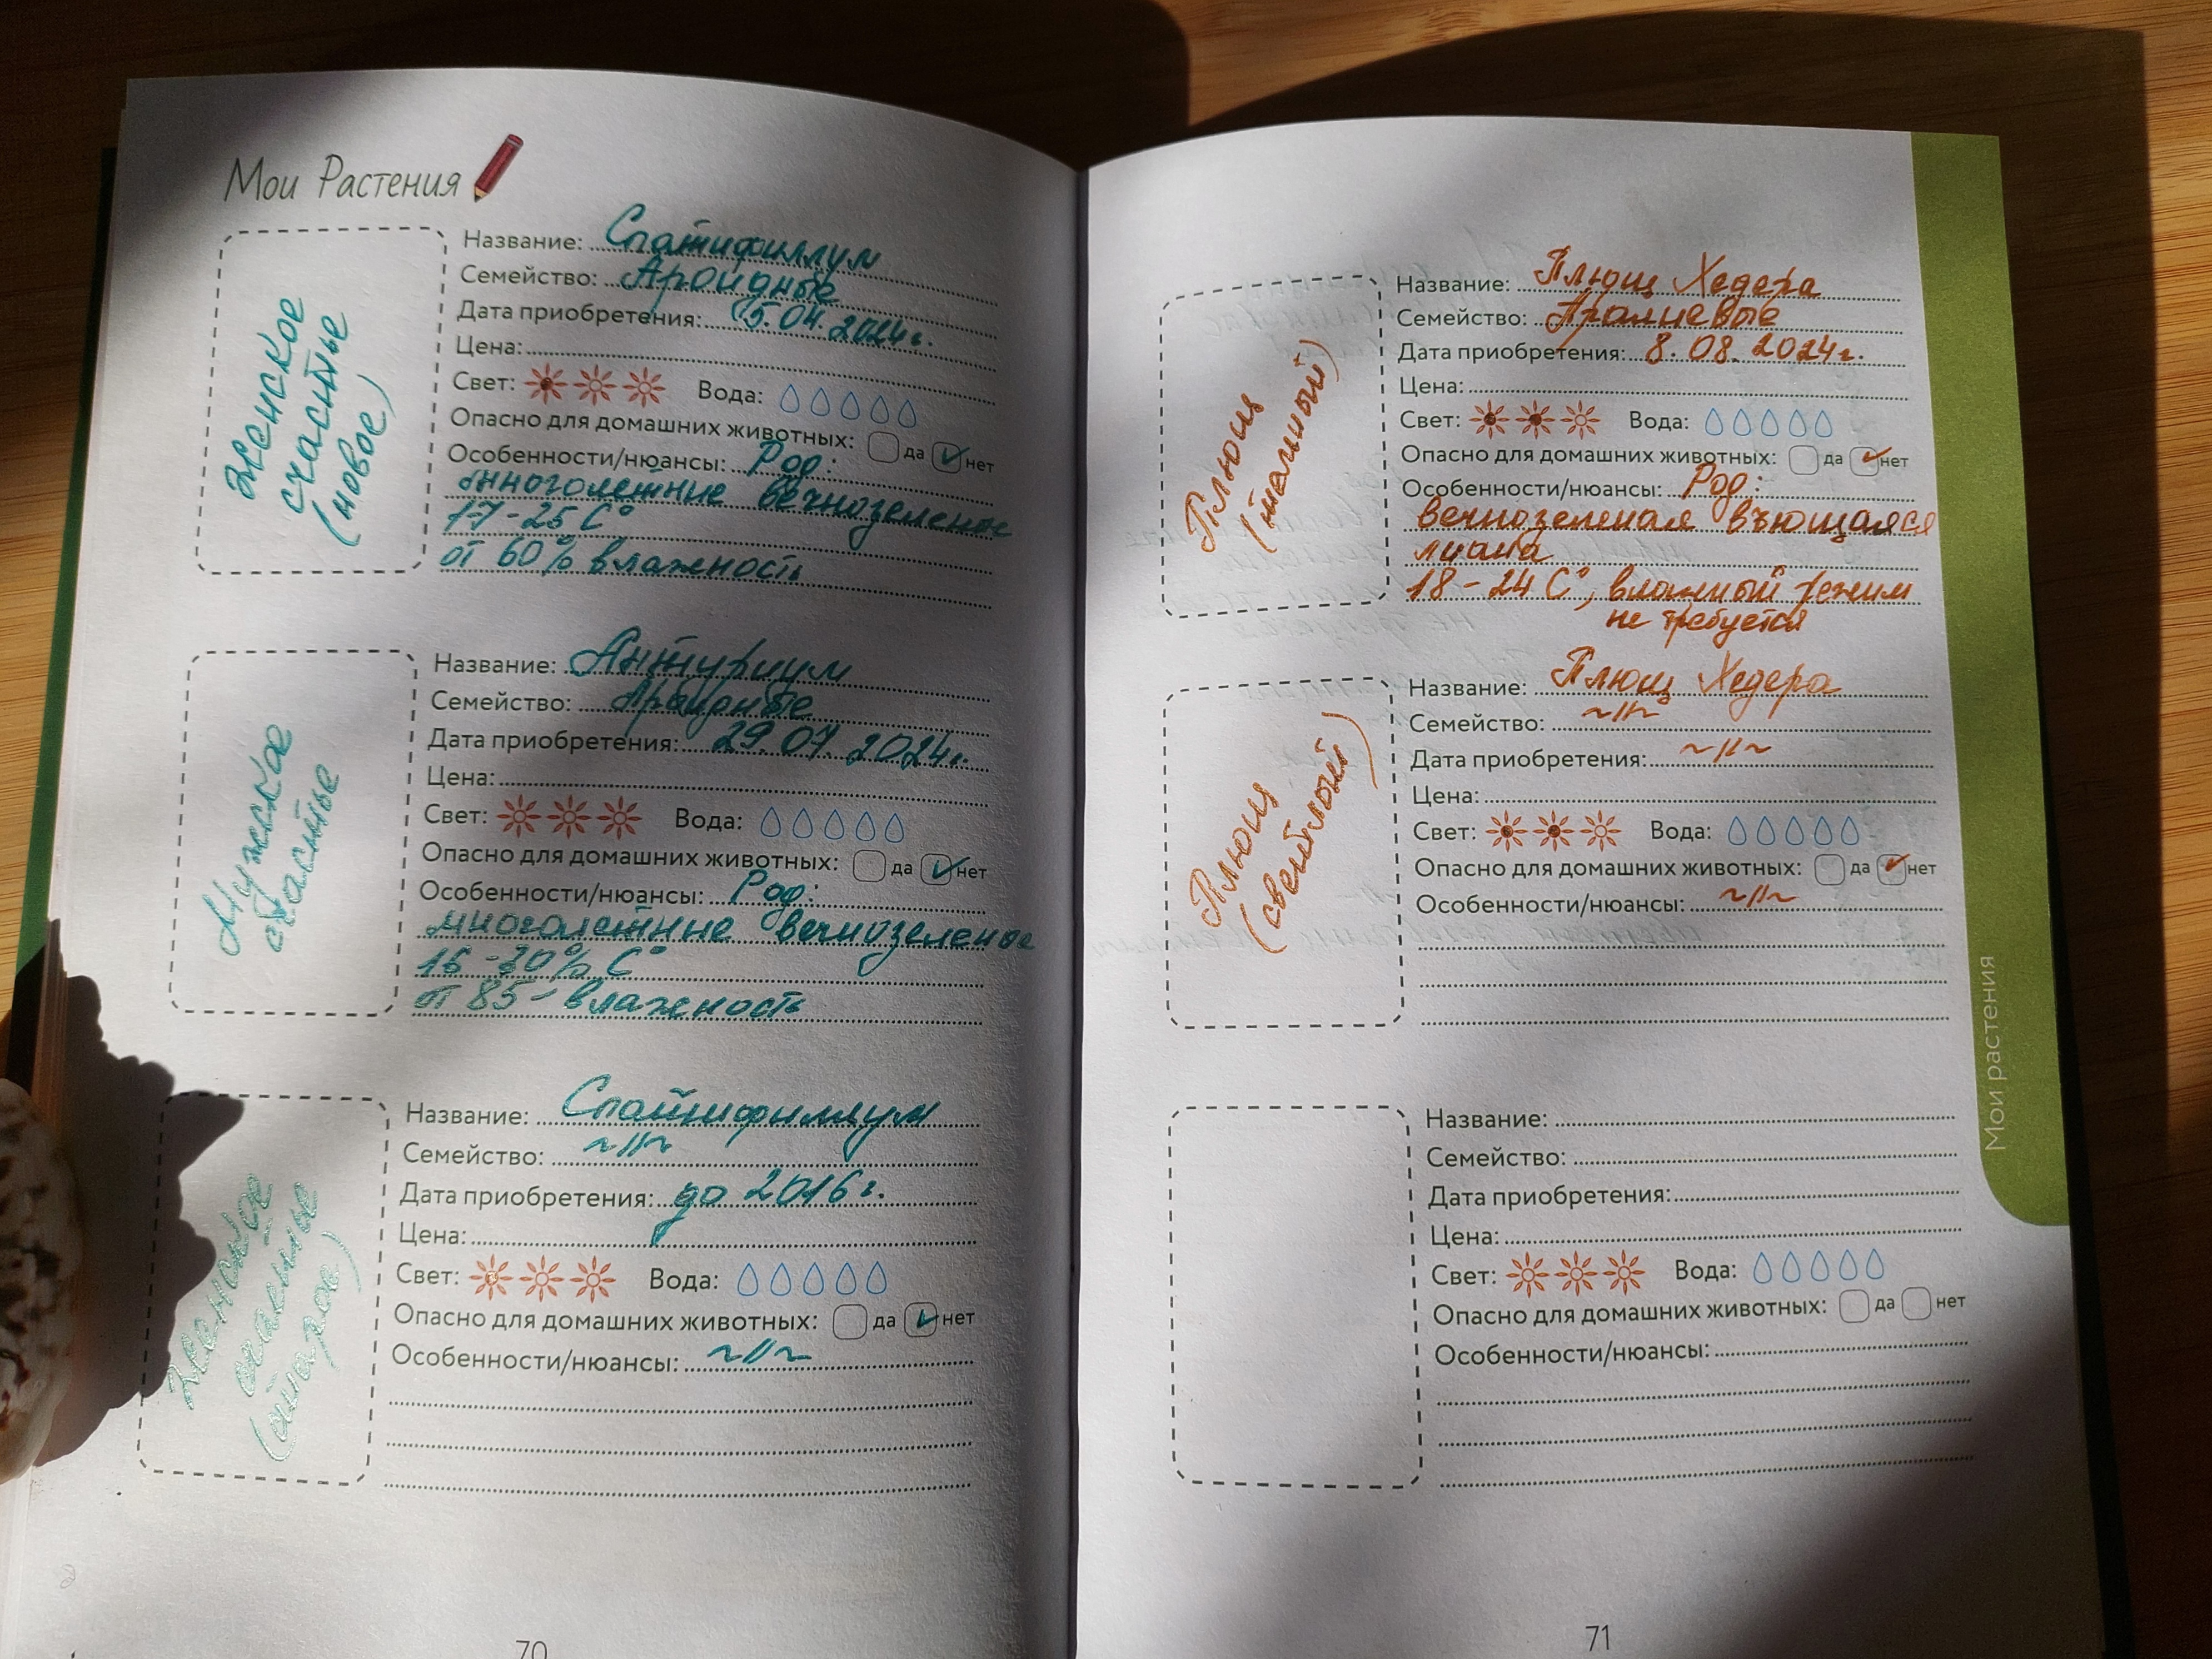 Мои Растения
Женское
счастье
(новое)
Название: Спатифиллум
Семейство: Ароидные
Дата приобретения: 15.04.2024г.
Цена:
Свет: Вода:
Опасно для домашних животных: да нет
Особенности/нюансы: Род:
многолетние вечнозеленое
17-25 С°
от 60% влажность
Мужское
счастье
Название: Антуриум
Семейство: Ароидные
Дата приобретения: 29.07.2024г.
Цена:
Свет: Вода:
Опасно для домашних животных: да нет
Особенности/нюансы: Род:
многолетние вечнозеленое
16-30% С°
от 85- влажность
Женское
счастье
(старое)
Название: Спатифиллум
Семейство: ~//~
Дата приобретения: до 2016г.
Цена:
Свет: Вода:
Опасно для домашних животных: да нет
Особенности/нюансы: ~//~
70
Плющ
(темный)
Название: Плющ Хедера
Семейство: Аралиевые
Дата приобретения: 8.08.2024г.
Цена:
Свет: Вода:
Опасно для домашних животных: да нет
Особенности/нюансы: Род:
вечнозеленая вьющаяся
лиана
18-24 С°, влажный режим
не требуется
Плющ
(светлый)
Название: Плющ Хедера
Семейство: ~//~
Дата приобретения: ~//~
Цена:
Свет: Вода:
Опасно для домашних животных: да нет
Особенности/нюансы: ~//~
Название:
Семейство:
Дата приобретения:
Цена:
Свет: Вода:
Опасно для домашних животных: да нет
Особенности/нюансы:
Мои растения
71